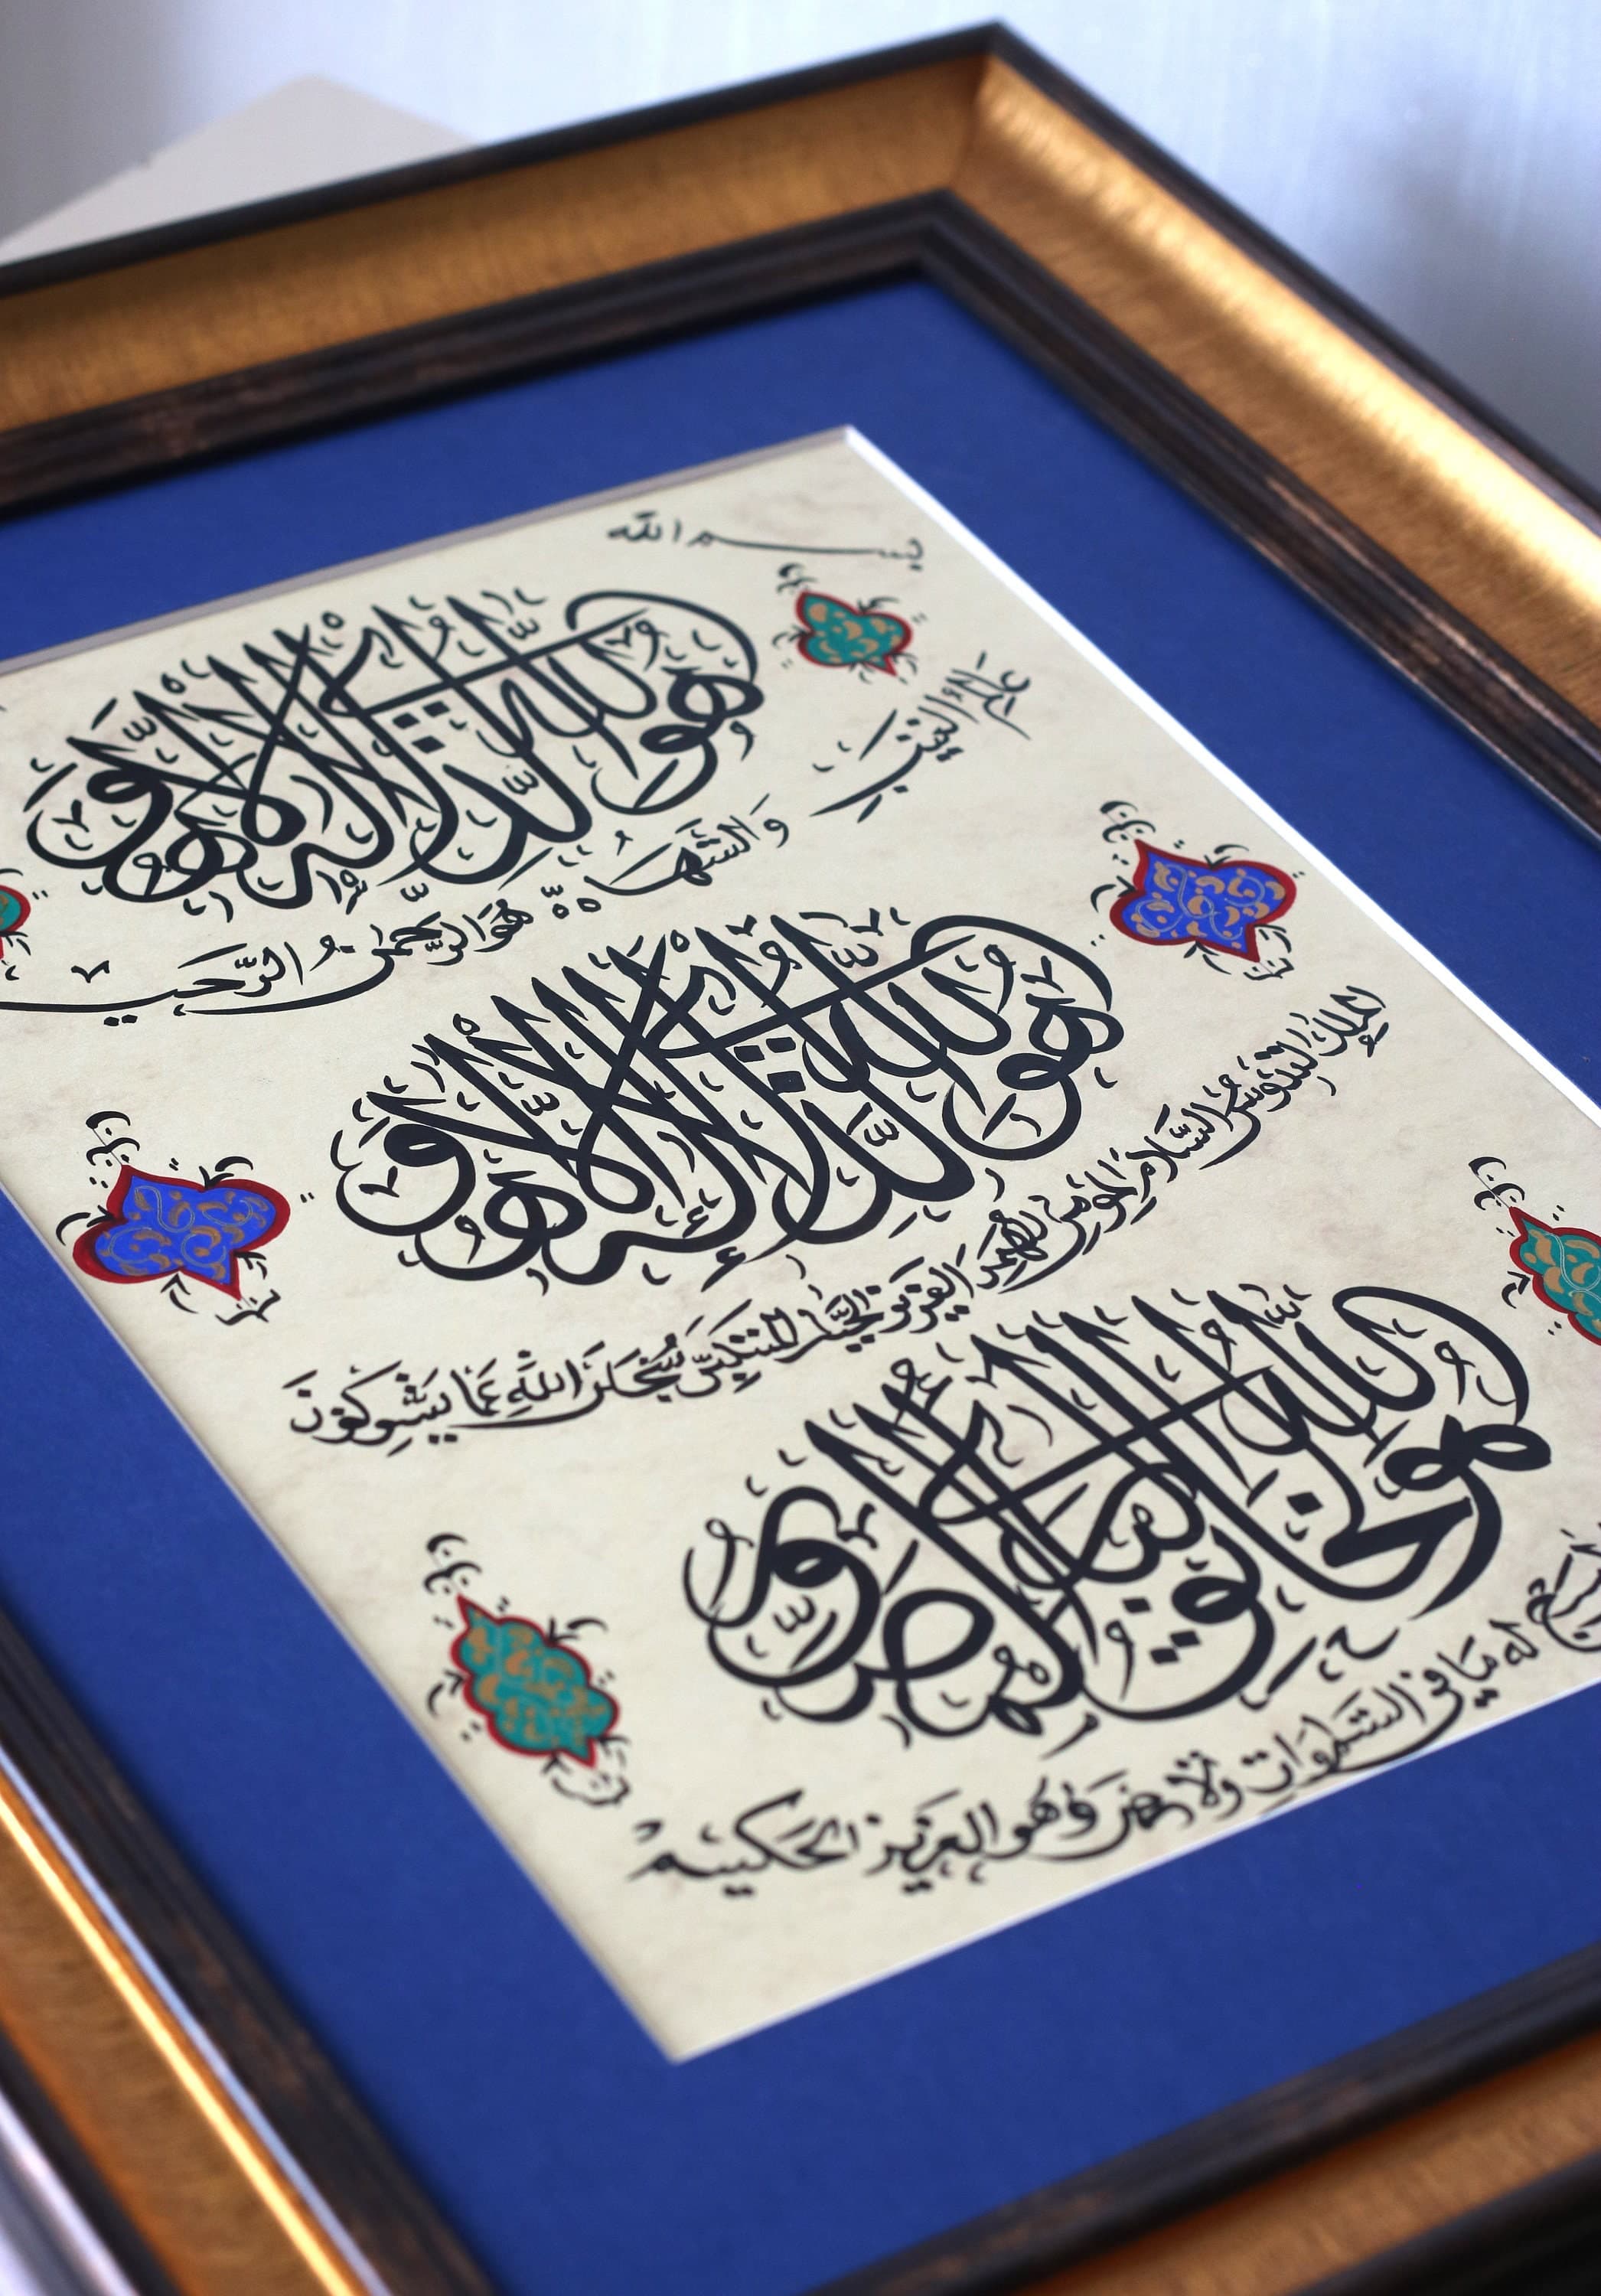 بسم الله
هو الله الذي لا إله إلا هو
عالم الغيب
والشهادة هو الرحمن الرحيم
هو الله الذي لا إله إلا هو
الملك القدوس السلام المؤمن المهيمن العزيز الجبار المتكبر سبحان الله عما يشركون
هو الله الخالق البارئ المصور
له ما في السموات والأرض وهو العزيز الحكيم